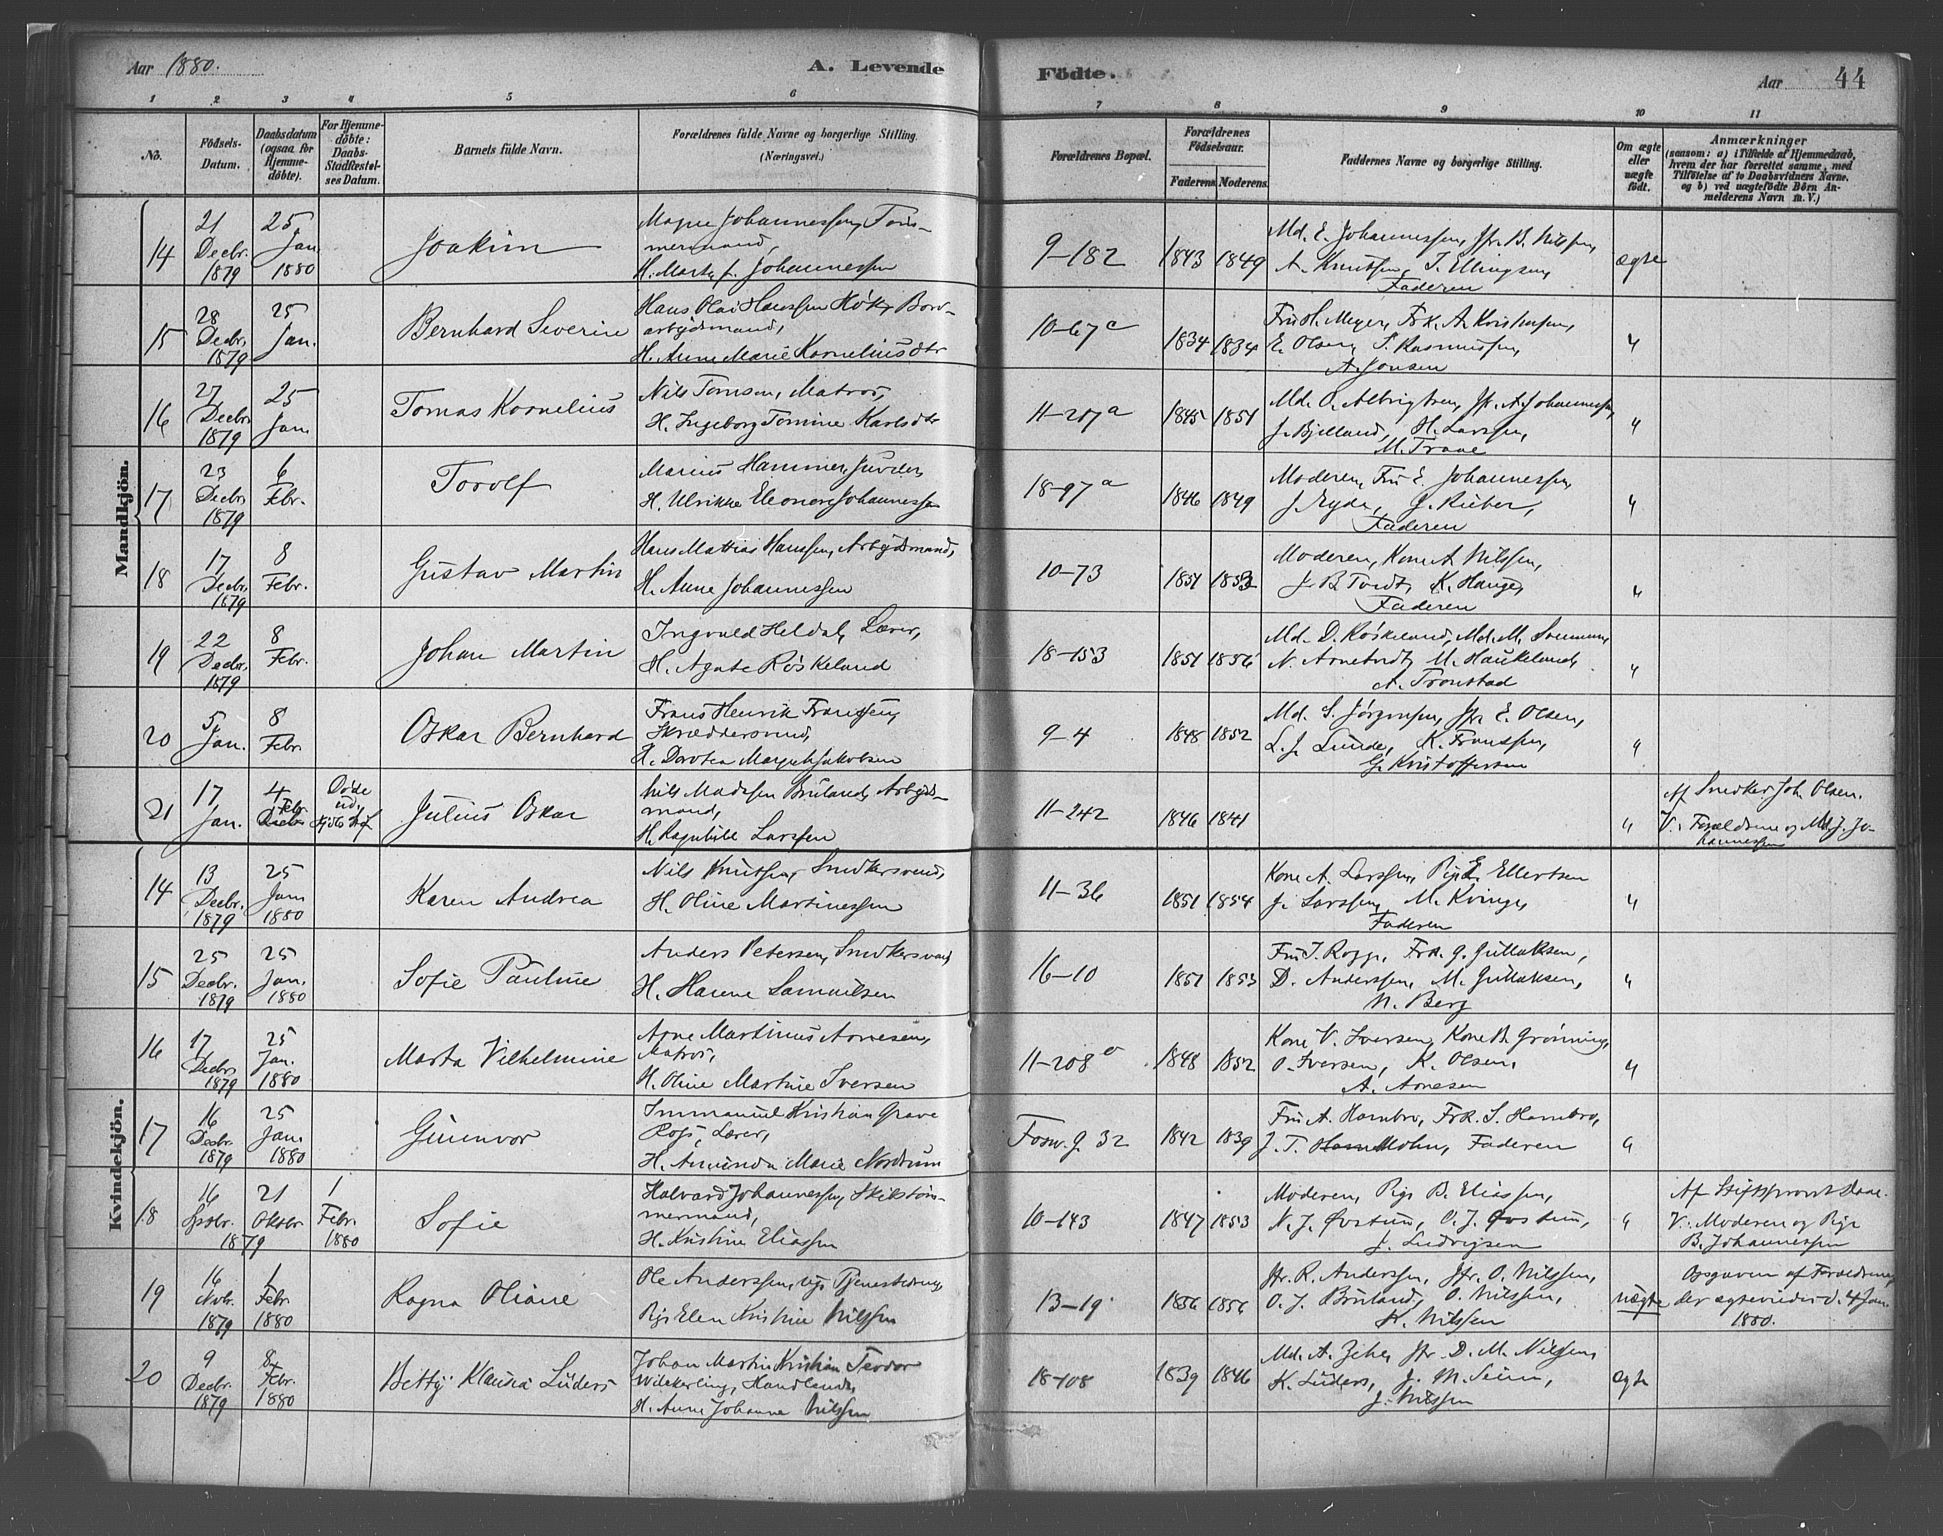 Aar 1880.
A. Levende
Födte.
Aar
44
1 2 3 4 5 6 7 8 9 10 11
No.
Födsels-Datum.
Daabsdatum (ogsaa for Hjemme-döbte).
For Hjemme-döbte: Daabs-Stadfæstel-ses Datum.
Barnets fulde Navn.
Forældrenes fulde Navne og borgerlige Stilling. (Næringsvei.)
Forældrenes Bopæl.
Forældrenes Födselsaar.
Faderens Moderens
Faddernes Navne og borgerlige Stilling.
Om ægte eller uægte födt.
Anmærkninger
(saasom: a) i Tilfælde af Hjemmedaab,
hvem der har forrettet samme, med
Tilföielse af to Daabsvidners Navne.
og b) ved uægtefödte Börn An-
melderens Navn m. V.)
Mandkjön.
14 21 Decbr. 1879 25 Jan. 1880 Joakim
Magne Johannessen, Töm-
mermand,
H. Marta f. Johannessen
9-182 1843 1849
Md. E. Johannessen, Jfr. B. Nilssen,
A. Knutsen, T. Ellingsen,
Faderen
ægte
15 28 Decbr. 1879 25 Jan. Bernhard Severin
Hans Olai Hanssen Bord-
arbejdsmand,
H. Anne Marie Korneliusdtr
10-67c 1834 1834
Fru H. Meyer, Frk. A. Kristensen,
E. Olsen, S. Rasmussen,
A. Jonsen
"
16 27 Decbr. 1879 25 Jan. Tomas Kornelius
Nils Tomsen, Matros,
H. Ingeborg Tomine Karlsdtr
11-207a 1845 1851
Md. O. Albrigtsen, Jfr. A. Johannessen,
J. Bjelland, H. Larssen,
M. Traae
"
17 23 Decbr. 1879 6 Febr. Torolf
Marius Hammer,
H. Ulrikke Eleonore Johannessen
18-97a 1846 1849
Moderen, Fru E. Johannessen,
J. Ryda, G. Rieber,
Faderen
"
18 17 Decbr. 1879 8 Febr. Gustav Martin
Hans Mattias Hanssen, Arbejdsmand,
H. Anne Johannessen
10-73 1851 1853
Moderen, Kone A. Nilssen,
J. B. Tvedt, K. Hauge,
Faderen
"
19 22 Decbr. 1879 8 Febr. Johan Martin
Ingvald Heldal, Lærer,
H. Agate Röskeland
18-153 1851 1856
Md. D. Röskeland, Md. M.
N. Arnetvedt, M. Haukeland,
A. Tronstad
"
20 5 Jan. 8 Febr. Oskar Bernhard
Frans Henrik Franssen,
Skræddersvend,
H. Dorotea Margrete Jakobsen
9-4 1848 1852
Md. S. Jörgensen, Jfr. E. Olsen,
L. J. Lunde, K. Franssen,
G. Kristoffersen
"
21 17 Jan. 4 Febr. Döde
Julius Oskar
Nils Madssen Bruland, Arbejds-
mand,
H. Ragnhilde Larssen
11-242 1846 1841
"
Af Snedker Joh. Olsen.
V: Forældrene og Md. J. Jo-
hannessen
Kvindekjön.
14 13 Decbr. 1879 25 Jan. 1880 Karen Andrea
Nils Knutsen, Snedkersvend,
H. Oline Martinessen
11-36 1851 1854
Kone A. Larssen, Pige E. Ellertsen
J. Larssen, M. Kvinge,
Faderen
"
15 25 Decbr. 1879 25 Jan. 1880 Sofie Pauline
Anders Petersen, Snedkersvend,
H. Hanne Samuelsen
16-10 1851 1853
Fru J. Rogge, Frk. G. Gullaksen,
D. Anderssen, M. Gullaksen,
N. Berg
"
16 17 Decbr. 1879 25 Jan. 1880 Marta Vilhelmine
Arne Martinus Arnesen,
Matros,
H. Oline Martine Iversen
11-208 1848 1852
Kone V. Iversen, Kone B. Grönning,
O. Iversen, K. Olsen,
A. Arnesen
"
17 16 Decbr. 1879 25 Jan. 1880 Gunnvor
Immanuel Kristian Grave
Rojs, Lærer,
H. Amunda Marie Nordrum
Fosw. g. 32 1842 1839
Fru A. Hambro, Frk. S. Hambro,
J. T. Mohn, Faderen
"
18 16 Spbr. 21 Oktbr. 1879 1 Febr. 1880 Sofie
Halvard Johannessen, Skibstöm-
mermand,
H. Kristine Eliassen
10-143 1847 1853
Moderen, Pige B. Eliassen,
N. J. Övstun, O. J. Övstun,
J. Ludvigsen
"
Af Stiftsprovst Daae.
V: Moderen og Pige
B. Johannessen
19 16 Nvbr. 1879 1 Febr. 1880 Ragna Oliane
Ole Anderssen, ug. Tjenestedreng,
Pige Elen Kristine Nilssen
13-19 1856 1856
Jfr. R. Anderssen, Jfr. O. Nilssen,
O. J. Bruland, O. Nilssen,
K. Nilssen
uægte
Opgaven af Forældrene,
der ægteviedes d. 4 Jan.
1880.
20 9 Decbr. 1879 8 Febr. 1880 Betty Klausia Lüders
Johan Martin Kristian Teodor
Wilckerling, Handlende,
H. Anne Johanne Nilssen
18-108 1839 1846
Md. A. Jebe, Jfr. D. M. Nilssen,
K. Lüders, J. M. Seim,
J. Nilssen
ægte